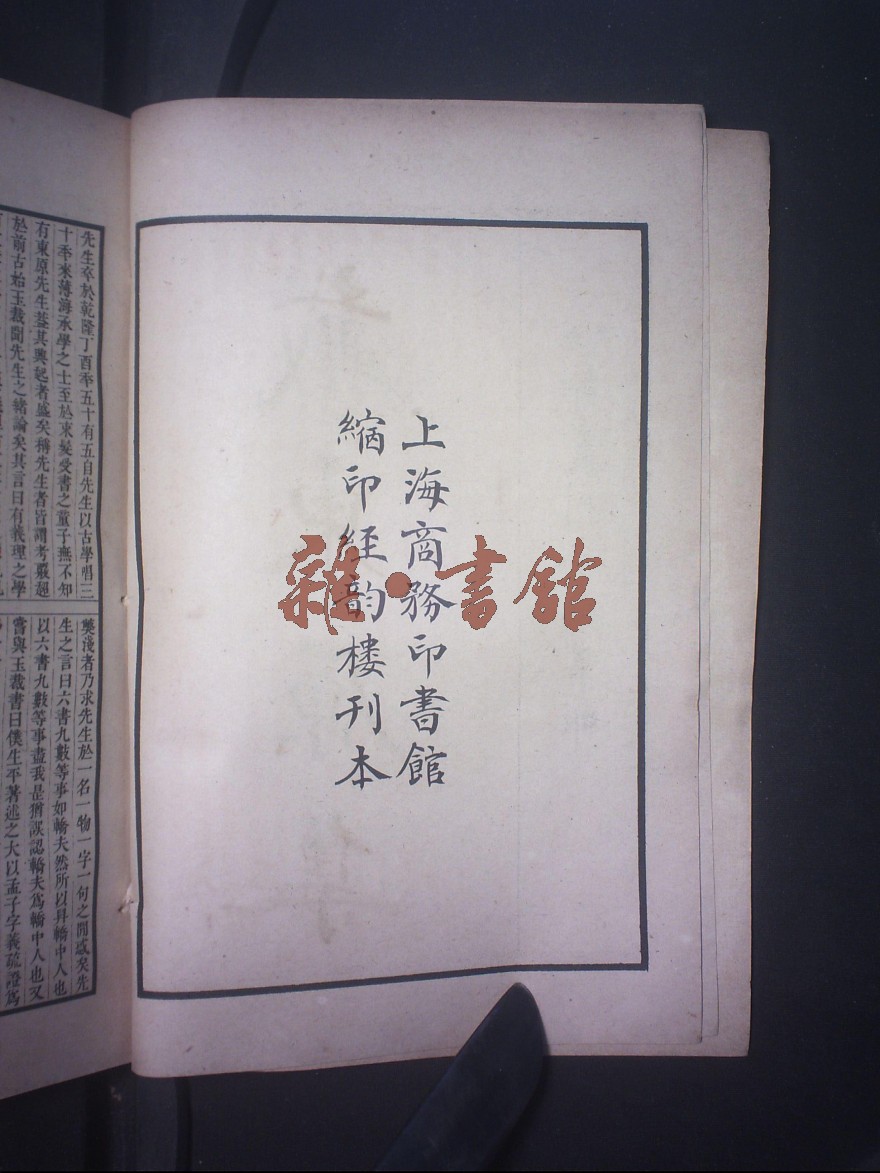 上海商務印書館
縮印經韵樓刊本
雜·書館
先生卒於乾隆丁酉年五十有五自先生以古學唱三
十年來薄海承學之士至於束髮受書之童子無不知
有東原先生葢其興起者盛矣稱先生者皆謂考覈超
於前古始玉裁聞先生之緒論矣其言曰有義理之學
樊淺者乃求先生於一名一物一字一句之閒惑矣先
生之言曰六書九數等事如轎夫然所以舁轎中人也
以六書九數等事盡我是猶誤認轎夫爲轎中人也又
嘗與玉裁書曰僕生平著述之大以孟子字義疏證爲